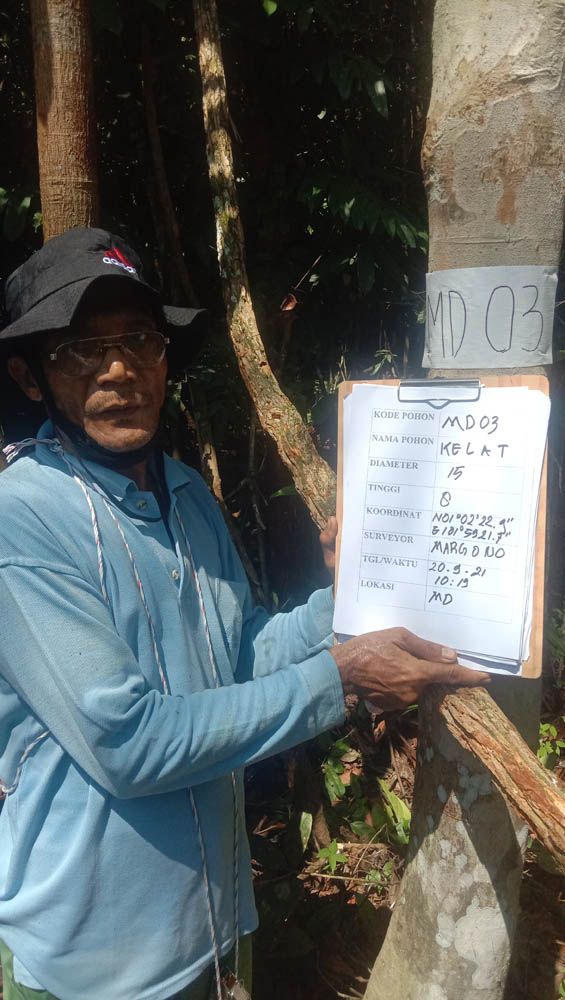 adidas
MD 03
KODE POHON MD03
NAMA POHON KELAT
DIAMETER 15
TINGGI 8
KOORDINAT N01°02'22.9"
E101°59'21.7"
SURVEYOR MARGONO
TGL/WAKTU 20-9-21
10:19
LOKASI MD